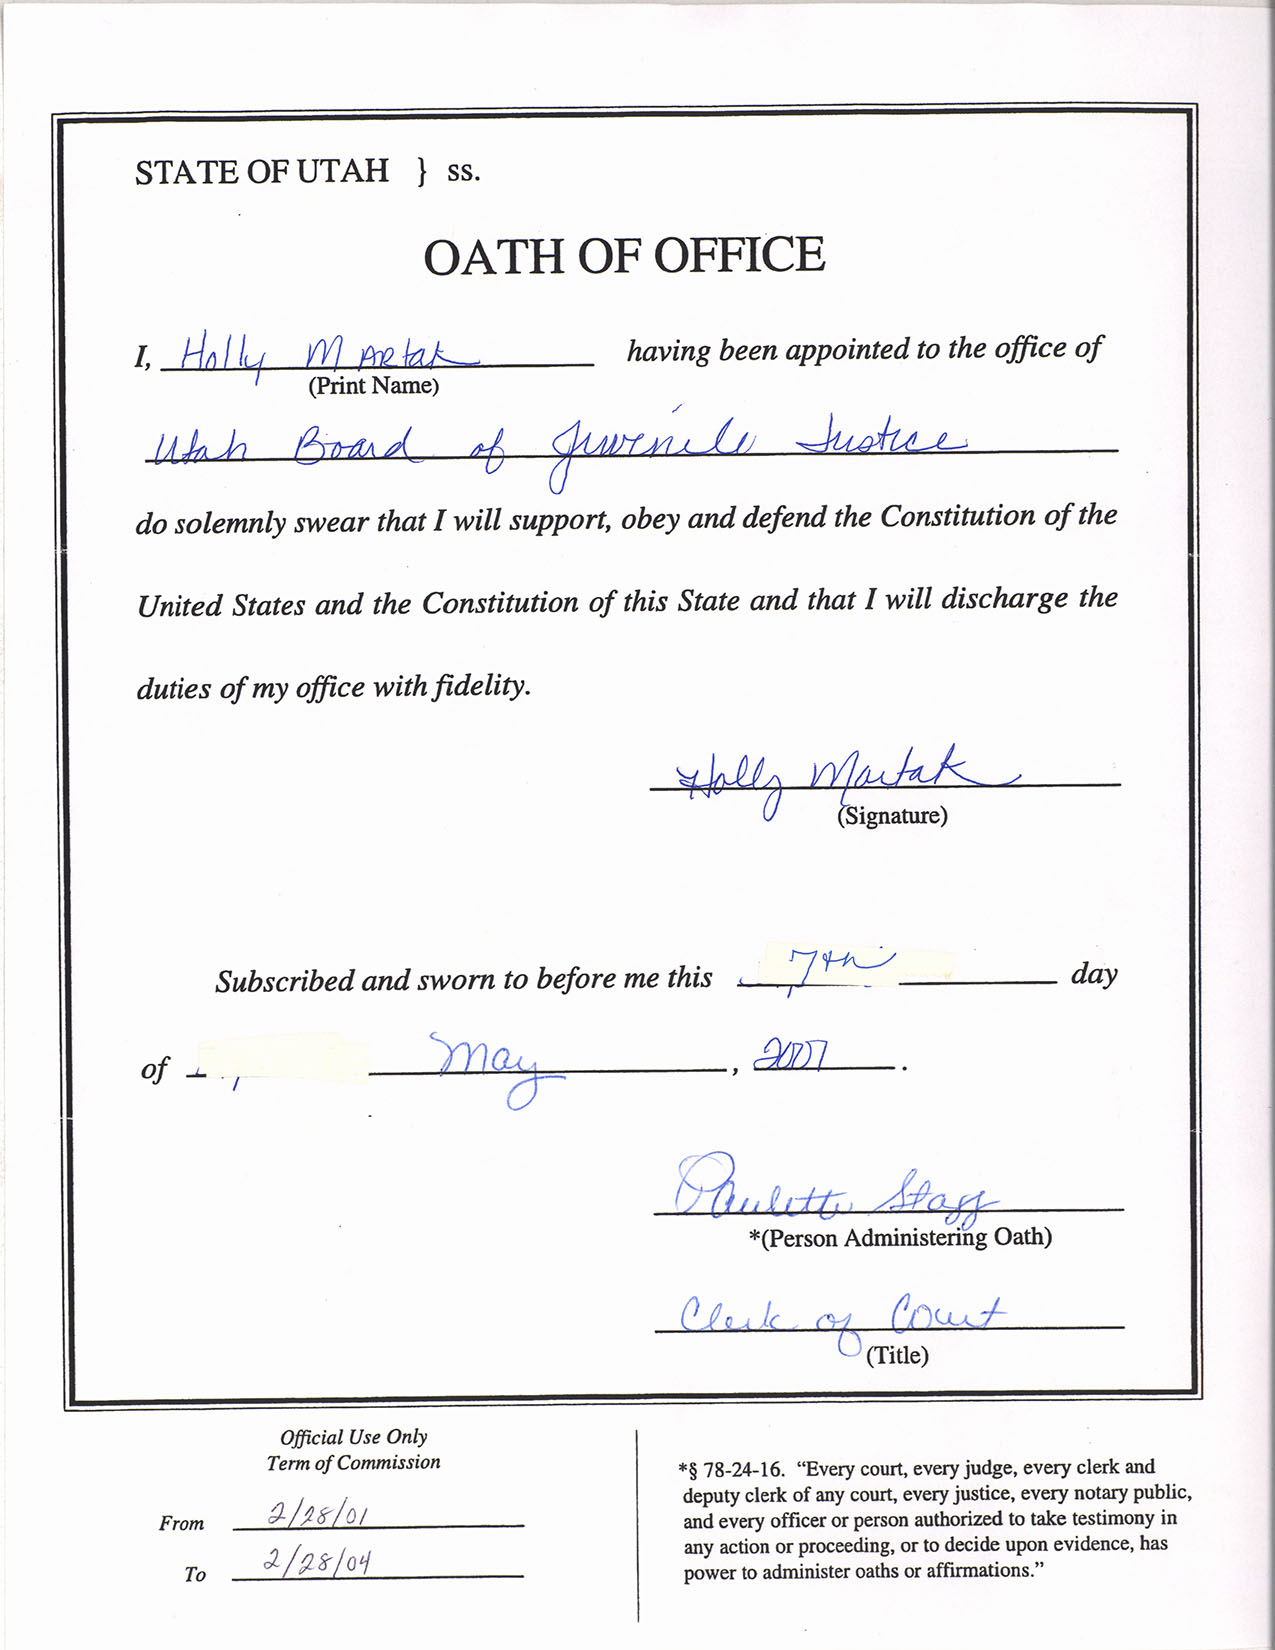 STATE OF UTAH } ss.
OATH OF OFFICE
I, Holly Martak having been appointed to the office of
(Print Name)
Utah Board of Juvenile Justice
do solemnly swear that I will support, obey and defend the Constitution of the
United States and the Constitution of this State and that I will discharge the
duties of my office with fidelity.
Holly Martak
(Signature)
Subscribed and sworn to before me this 7th day
of May, 2001.
Paulette Stagg
*(Person Administering Oath)
Clerk of Court
(Title)
Official Use Only
Term of Commission
From 2/28/01
To 2/28/04
*§ 78-24-16. “Every court, every judge, every clerk and
deputy clerk of any court, every justice, every notary public,
and every officer or person authorized to take testimony in
any action or proceeding, or to decide upon evidence, has
power to administer oaths or affirmations.”